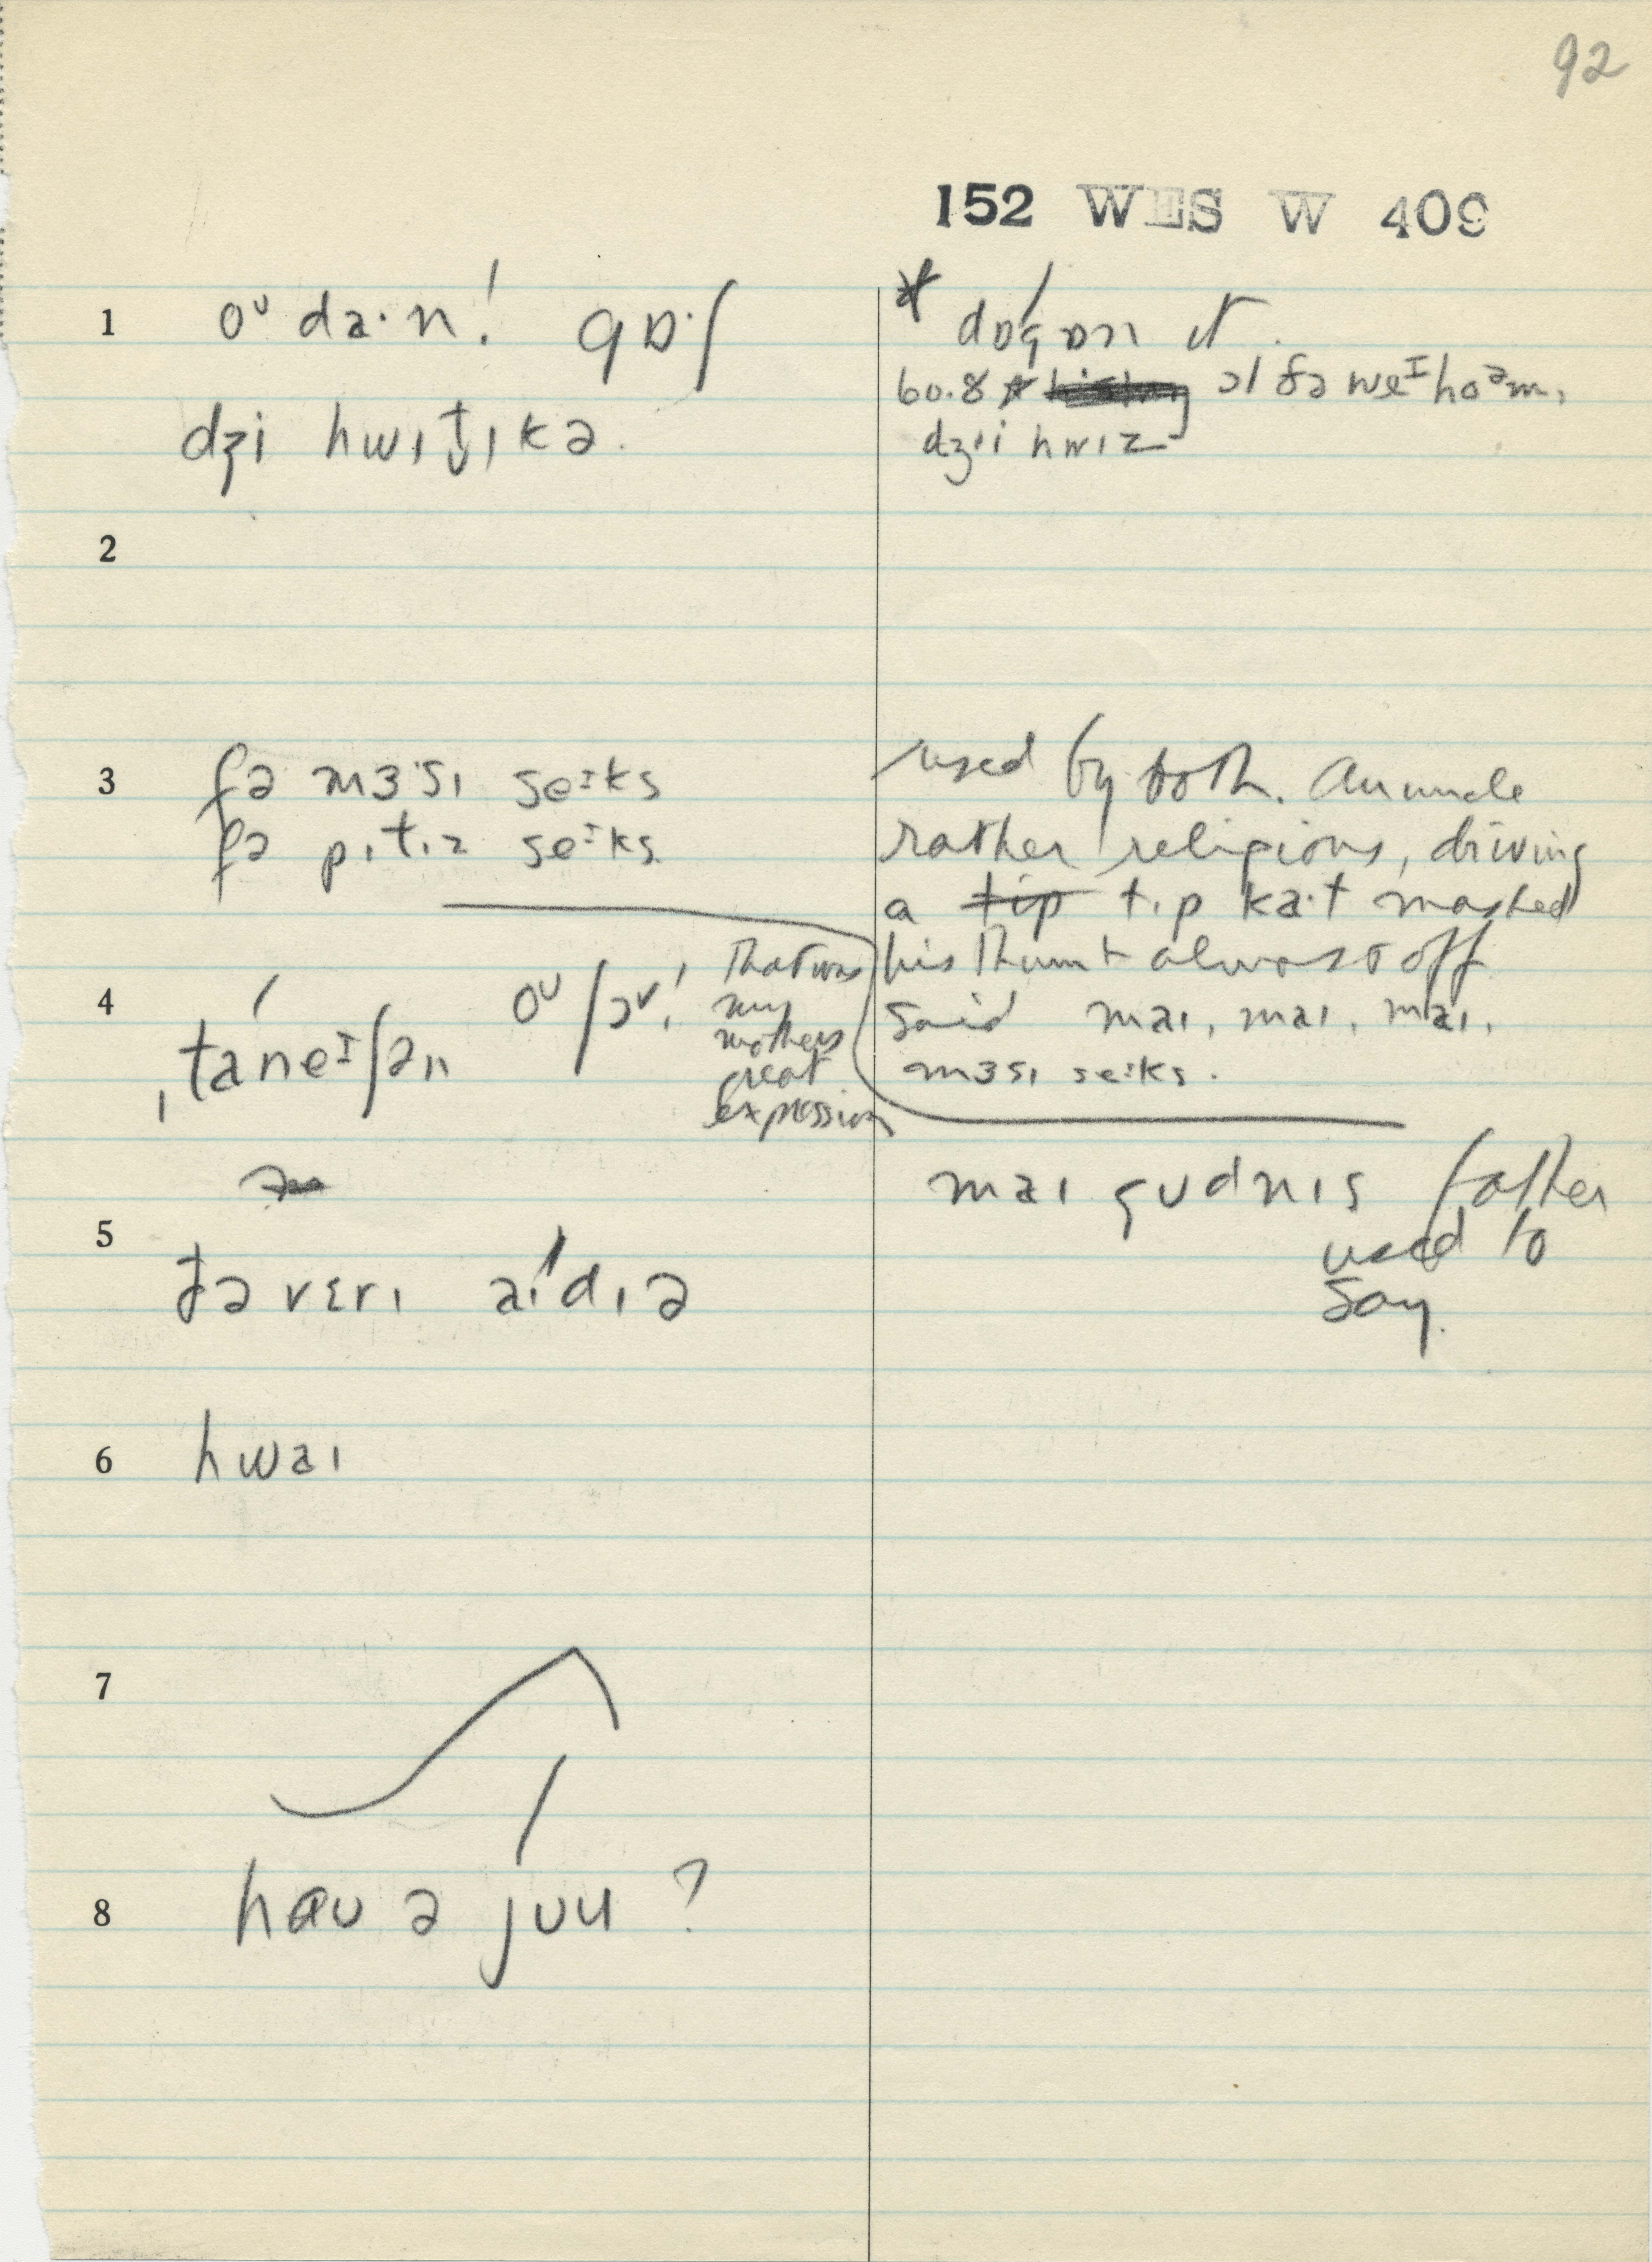 92
152 WES W 409
1 oᵁ da·n! gɒ·ʃ
dʒi hwɪt̬ɪkə.
* dɒgɒn ɪt.
60.8 ɔl ðə weᴵ hoᵊm,
dʒii hwɪz
2
3 fə mɜ·sɪ seᴵks
fə pɪtɪz seᴵks
used by both. An uncle
rather religious, driving
a tip tɪp ka·t mashed
his thumb almost off
said maɪ, maɪ, maɪ,
mɜsɪ seɪks.
4 ˌtaˈneᴵʃən oᵁ ʃɔᵛ!
That was
my
mothers
great
expression
maɪ gʊdnɪs father
used to
say.
5 ðə vɛrɪ aɪˈdɪə
6 hwaɪ
7
8 haʊ ə juu ?